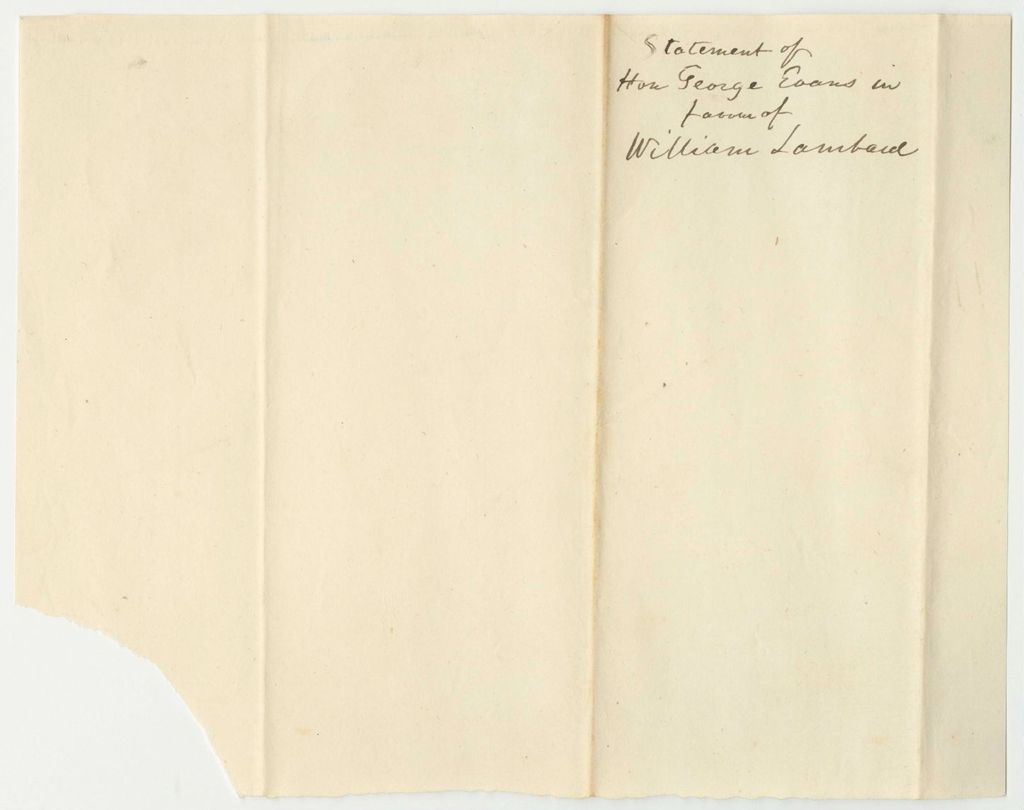 Statement of
Hon George Evans in
favour of
William Lambard